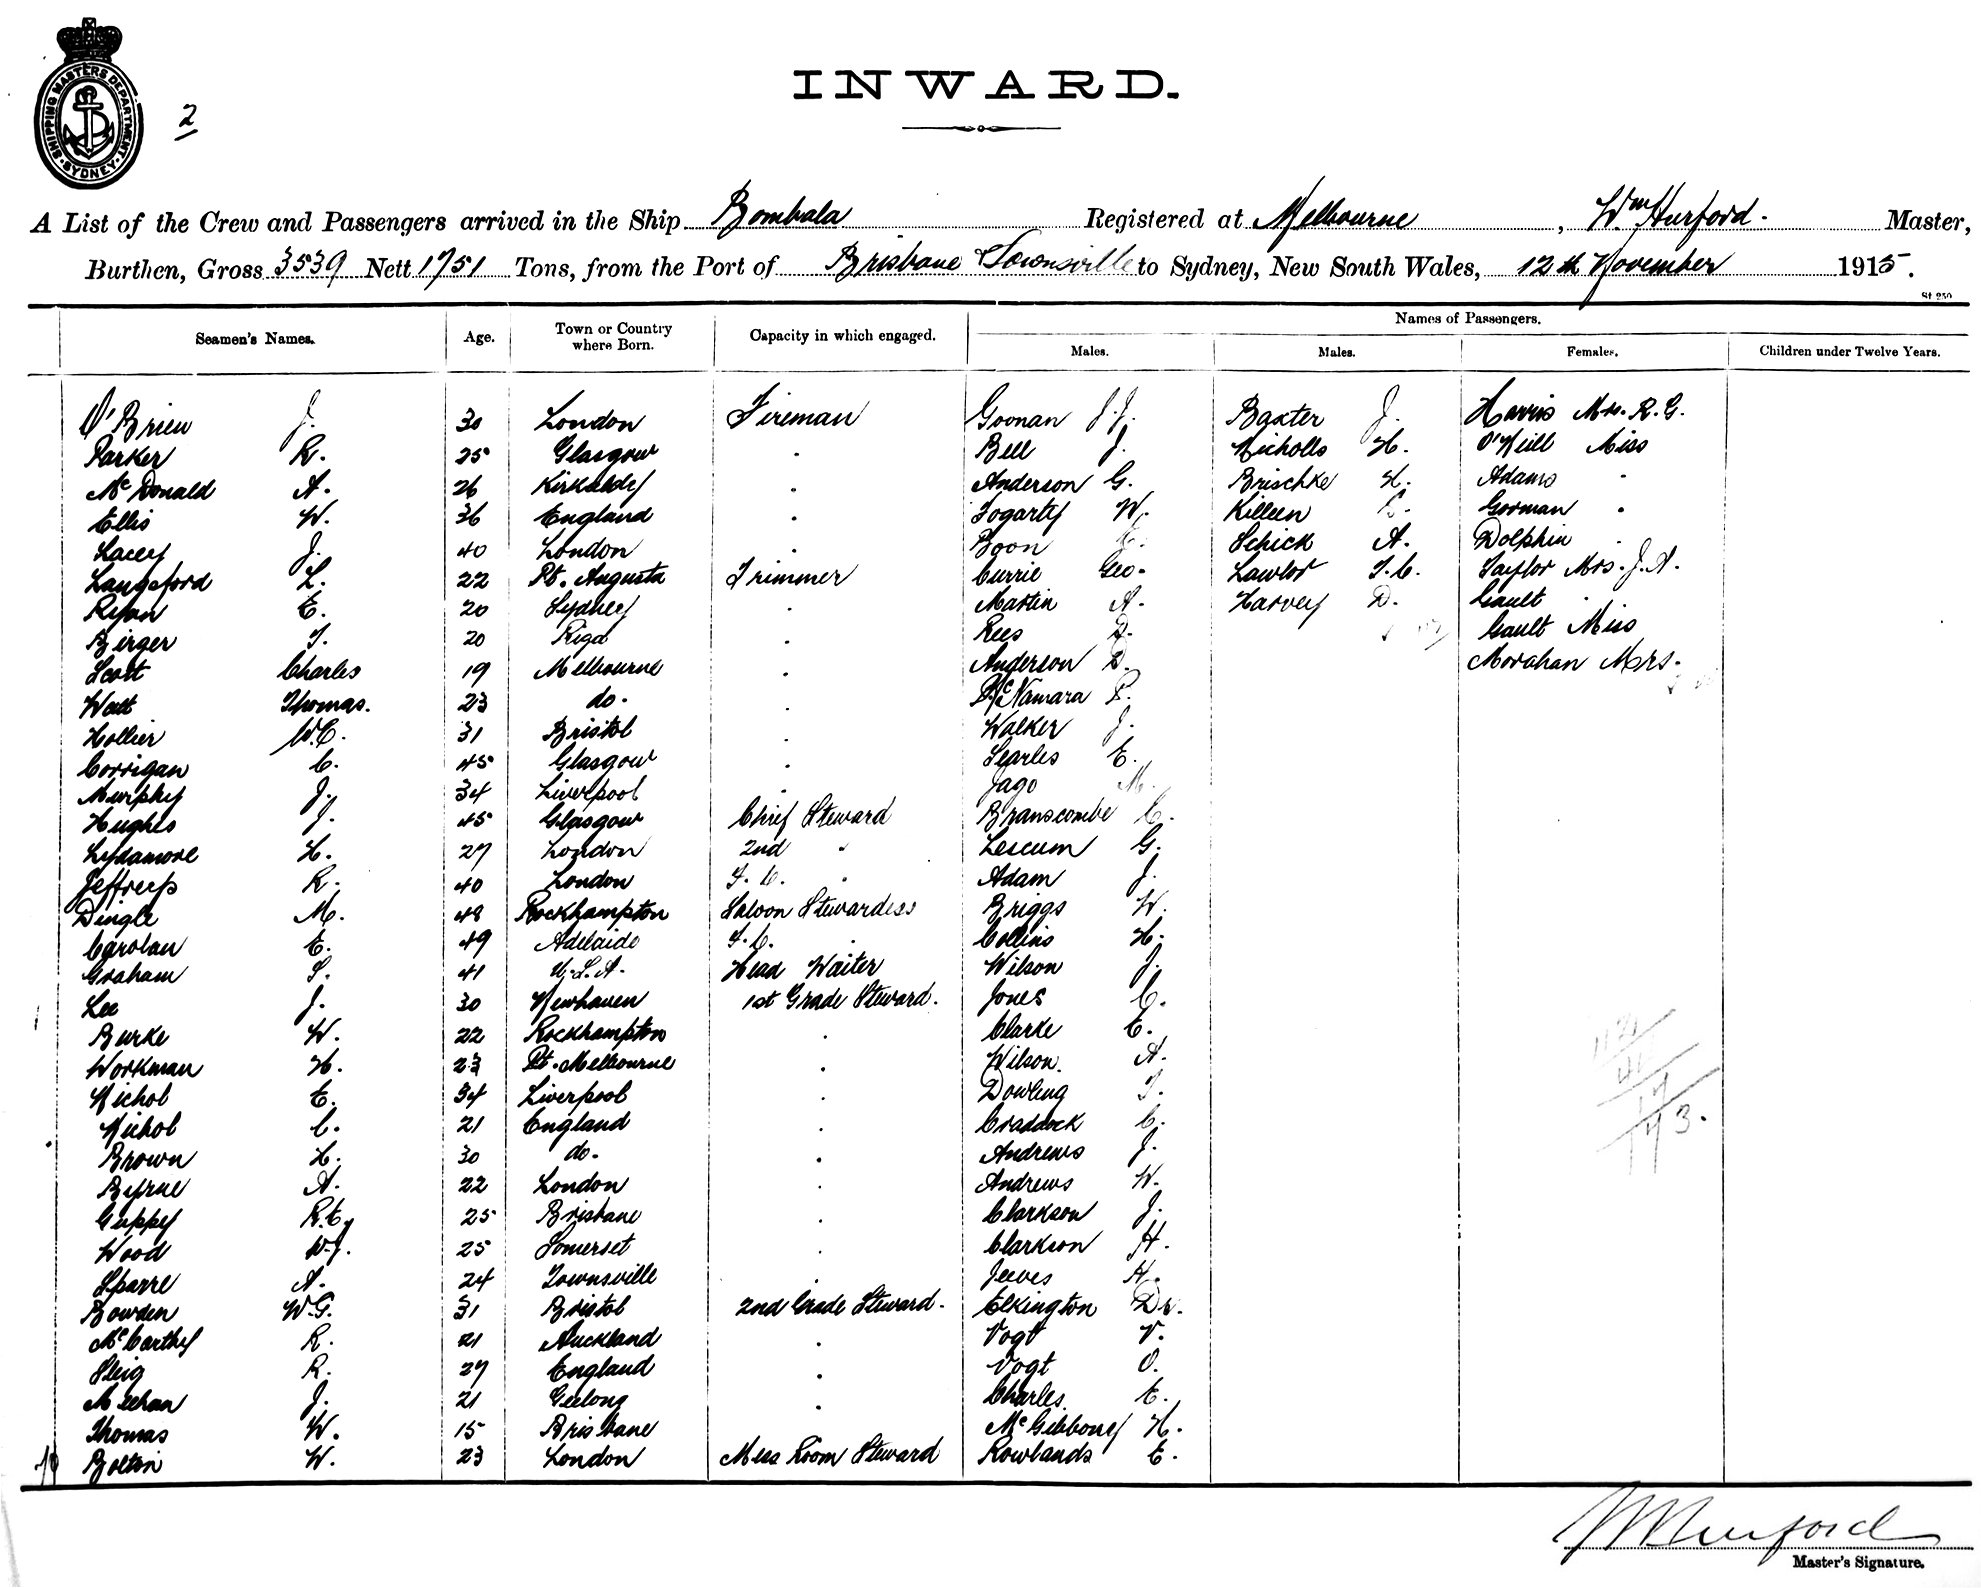 SHIPPING MASTERS DEPARTMENT · SYDNEY ·
2
INWARD.
A List of the Crew and Passengers arrived in the Ship Bombala Registered at Melbourne, Wm Hurford. Master,
Burthen, Gross 3539 Nett 1751 Tons, from the Port of Brisbane Townsville to Sydney, New South Wales, 12th November 1915.
St 250
Names of Passengers.
Seamen's Names. Age. Town or Country where Born. Capacity in which engaged. Males. Males. Females. Children under Twelve Years.
O'Brien J. 30 London Fireman Goonan J.J. Baxter J. Harris Mrs. R.G.
Parker R. 25 Glasgow . Bell J. Nicholls H. O'Neill Miss
McDonald A. 26 Kirkaldy . Anderson G. Brischke H. Adams "
Ellis W. 36 England . Fogarty W. Killeen Gorman "
Lacey J. 40 London . Boon Schick A. Dolphin "
Langsford L. 22 Pt. Augusta Trimmer Currie Geo. Lawlor T.C. Taylor Mrs. J.A.
Ryan E. 20 Sydney . Martin A. Harvey D. Gault .
Birger T. 20 Riga . Rees D. Gault Miss
Scott Charles 19 Melbourne . Anderson D. Morahan Mrs.
Watt Thomas. 23 do. . McNamara P.
Hollier W.C. 31 Bristol . Walker J.
Corrigan C. 45 Glasgow . Searles E.
Murphy J. 34 Liverpool . Jago M.
Hughes J. 45 Glasgow Chief Steward Branscombe C.
Lydamore H. 27 London 2nd " Lescum G.
Jeffreys R. 40 London F.C. " Adam J.
Dingle M. 48 Rockhampton Saloon Stewardess Briggs W.
Carolan E. 49 Adelaide F.C. . Collins H.
Graham S. 41 U.S.A. Head Waiter Wilson J.
Lee J. 30 Newhaven 1st Grade Steward. Jones C.
Burke W. 22 Rockhampton . Clarke E.
Workman H. 23 Pt. Melbourne . Wilson A.
Nichol E. 34 Liverpool . Dowling T.
Nichol C. 21 England . Craddock C.
Brown H. 30 do. . Andrews J.
Byrne A. 22 London . Andrews W.
Guppy R.C. 25 Brisbane . Clarkson J.
Wood W.J. 25 Somerset . Clarkson H.
Sparre A. 24 Townsville . Jeeves H.
Bowden W.G. 31 Bristol 2nd Grade Steward. Elkington Dr.
McCarthy R. 21 Auckland . Vogt V.
Sleig R. 27 England . Vogt O.
Meehan J. 21 Geelong . Charles E.
Thomas W. 15 Brisbane McGibbony H.
Bolton W. 23 London Mess Room Steward Rowlands E.
WHurford
Master's Signature.